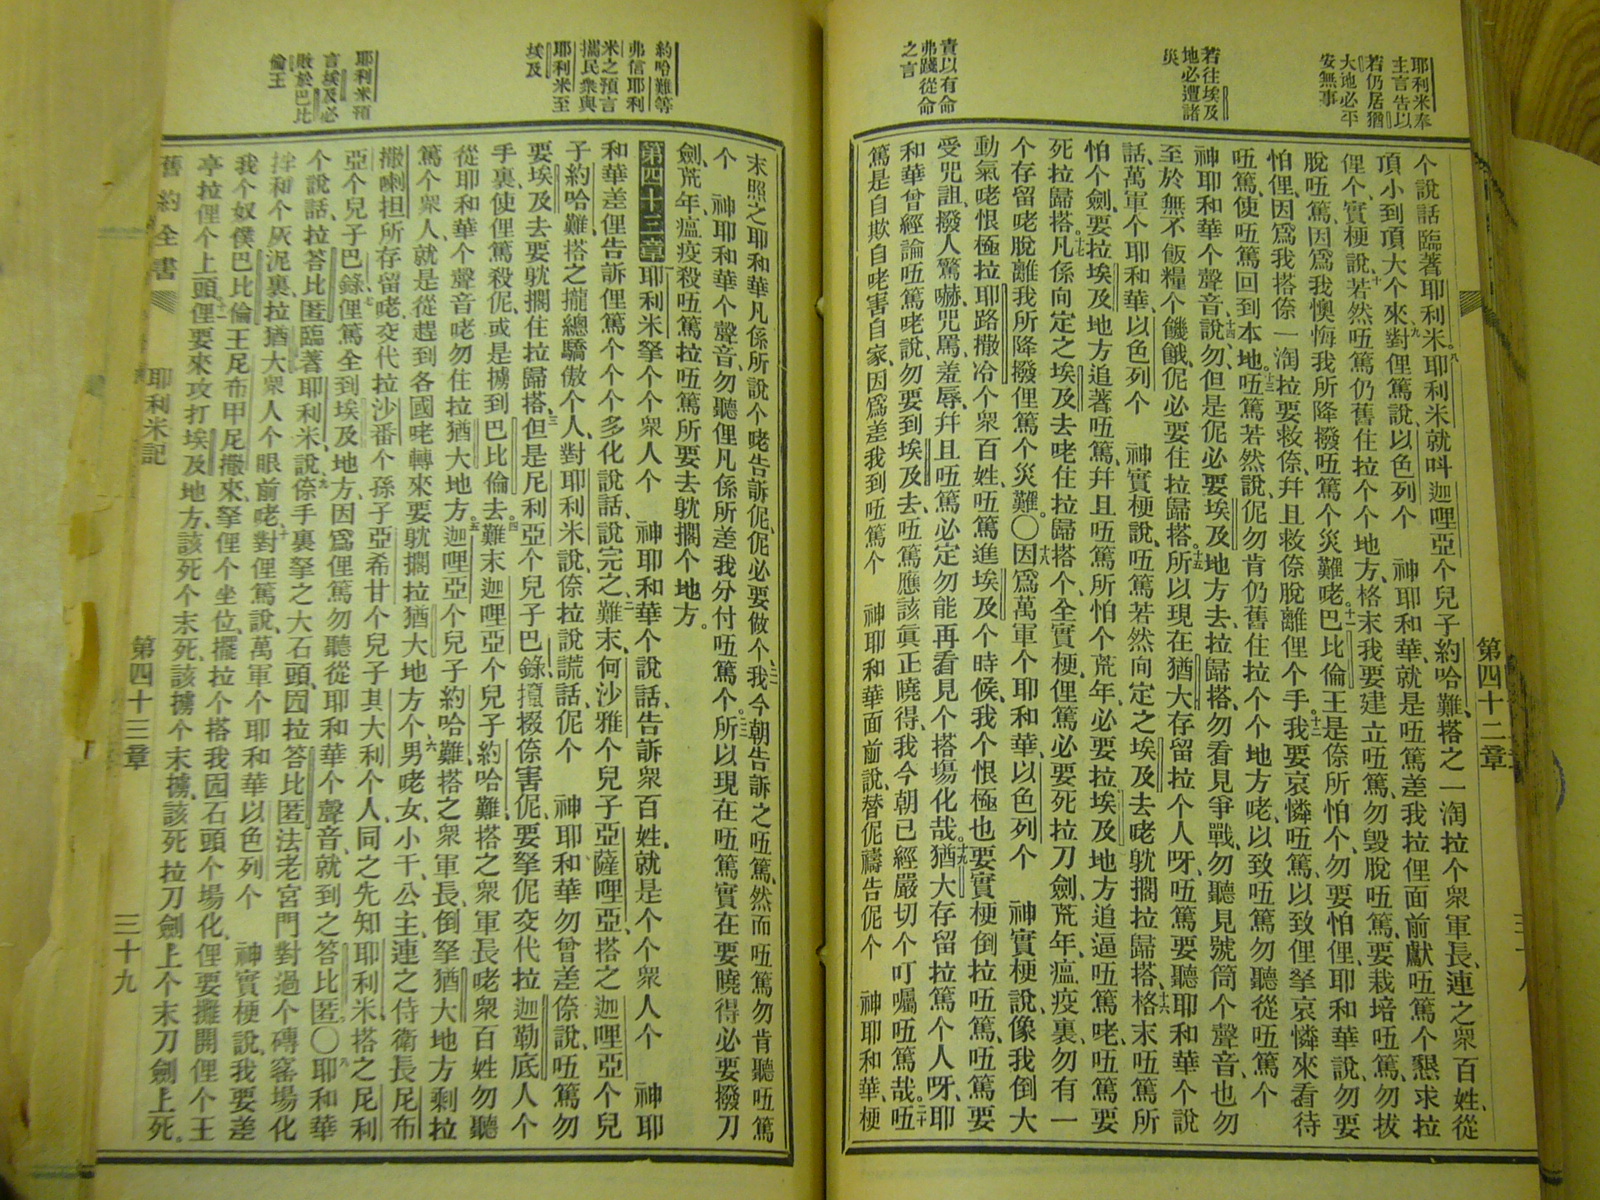 第四十二章
耶利米奉
主言告以
若仍居猶
大地必平
安無事
若往埃及
地必遭諸
災
責以有命
弗踐從命
之言
个說話臨著耶利米八耶利米就呌迦哩亞个兒子約哈難搭之一淘拉个衆軍長連之衆百姓從
頂小到頂大个來九對俚篤說以色列个 神耶和華就是吪篤差我拉俚面前獻吪篤个懇求拉
俚个實梗說十若然吪篤仍舊住拉个个地方格末我要建立吪篤勿毀脫吪篤要栽培吪篤勿拔
脫吪篤因爲我懊悔我所降撥吪篤个災難咾十一巴比倫王是倷所怕个勿要怕俚耶和華說勿要
怕俚因爲我搭倷一淘拉要救倷幷且救倷脫離俚个手十二我要哀憐吪篤以致俚拏哀憐來看待
吪篤使吪篤回到本地十三吪篤若然說伲勿肯仍舊住拉个个地方咾以致吪篤勿聽從吪篤个
神耶和華个聲音十四說勿但是伲必要埃及地方去拉歸搭勿看見爭戰勿聽見號筒个聲音也勿
至於無不飯糧个饑餓伲必要住拉歸搭十五所以現在猶大存留拉个人呀吪篤要聽耶和華个說
話萬軍个耶和華以色列个 神實梗說吪篤若然向定之埃及去咾躭擱拉歸搭十六格末吪篤所
怕个劍要拉埃及地方追著吪篤幷且吪篤所怕个荒年必要拉埃及地方追逼吪篤咾吪篤要
死拉歸搭十七凡係向定之埃及去咾住拉歸搭个全實梗俚篤必要死拉刀劍荒年瘟疫裏勿有一
个存留咾脫離我所降撥俚篤个災難○十八因爲萬軍个耶和華以色列个 神實梗說像我倒大
動氣咾恨極拉耶路撒冷个衆百姓吪篤進埃及个時候我个恨極也要實梗倒拉吪篤吪篤要
受咒詛撥人驚嚇咒罵羞辱幷且吪篤必定勿能再看見个搭場化哉十九猶大存留拉篤个人呀耶
和華曾經論吪篤咾說勿要到埃及去吪篤應該眞正曉得我今朝已經嚴切个叮囑吪篤哉二十吪
篤是自欺自咾害自家因爲差我到吪篤个 神耶和華面前說替伲禱告伲个 神耶和華梗
約哈難等
弗信耶利
米之預言
攜民衆與
耶利米至
埃及
耶利米預
言埃及必
敗於巴比
倫王
末照之耶和華凡係所說个咾告訴伲伲必要做个二一我今朝告訴之吪篤然而吪篤勿肯聽吪篤
个 神耶和華个聲音勿聽俚凡係所差我分付吪篤个二二所以現在吪篤實在要曉得必要撥刀
劍荒年瘟疫殺吪篤拉吪篤所要去躭擱个地方
第四十三章耶利米拏个个衆人个 神耶和華个說話告訴衆百姓就是个个衆人个 神耶
和華差俚告訴俚篤个个个多化說話說完之二難末何沙雅个兒子亞薩哩亞搭之迦哩亞个兒
子約哈難搭之攏總驕傲个人對耶利米說倷拉說謊話伲个 神耶和華勿曾差倷說吪篤勿
要埃及去要躭擱住拉歸搭三但是尼利亞个兒子巴錄攛掇倷害伲要拏伲交代拉迦勒底人个
手裏使俚篤殺伲或是擄到巴比倫去四難末迦哩亞个兒子約哈難搭之衆軍長咾衆百姓勿聽
從耶和華个聲音咾勿住拉猶大地方五迦哩亞个兒子約哈難搭之衆軍長倒拏猶大地方剩拉
篤个衆人就是從趕到各國咾轉來要躭擱拉猶大地方个六男咾女小干公主連之侍衛長尼布
撒喇担所存留咾交代拉沙番个孫子亞希甘个兒子其大利个人同之先知耶利米搭之尼利
亞个兒子巴錄七俚篤全到埃及地方因爲俚篤勿聽從耶和華个聲音就到之答比匿○八耶和華
个說話拉答比匿臨著耶利米說九倷手裏拏之大石頭囥拉答比匿法老宮門對過个磚窰場化
拌和个灰泥裏拉猶大衆人个眼前咾十對俚篤說萬軍个耶和華以色列个 神實梗說我要差
我个奴僕巴比倫王尼布甲尼撒來拏俚个坐位擺拉个搭我囥石頭个場化俚要攤開俚个王
亭拉俚个上頭十一俚要來攻打埃及地方該死个末死該擄个末擄該死拉刀劍上个末刀劍上死
舊約全書
耶利米記
第四十三章
三十九